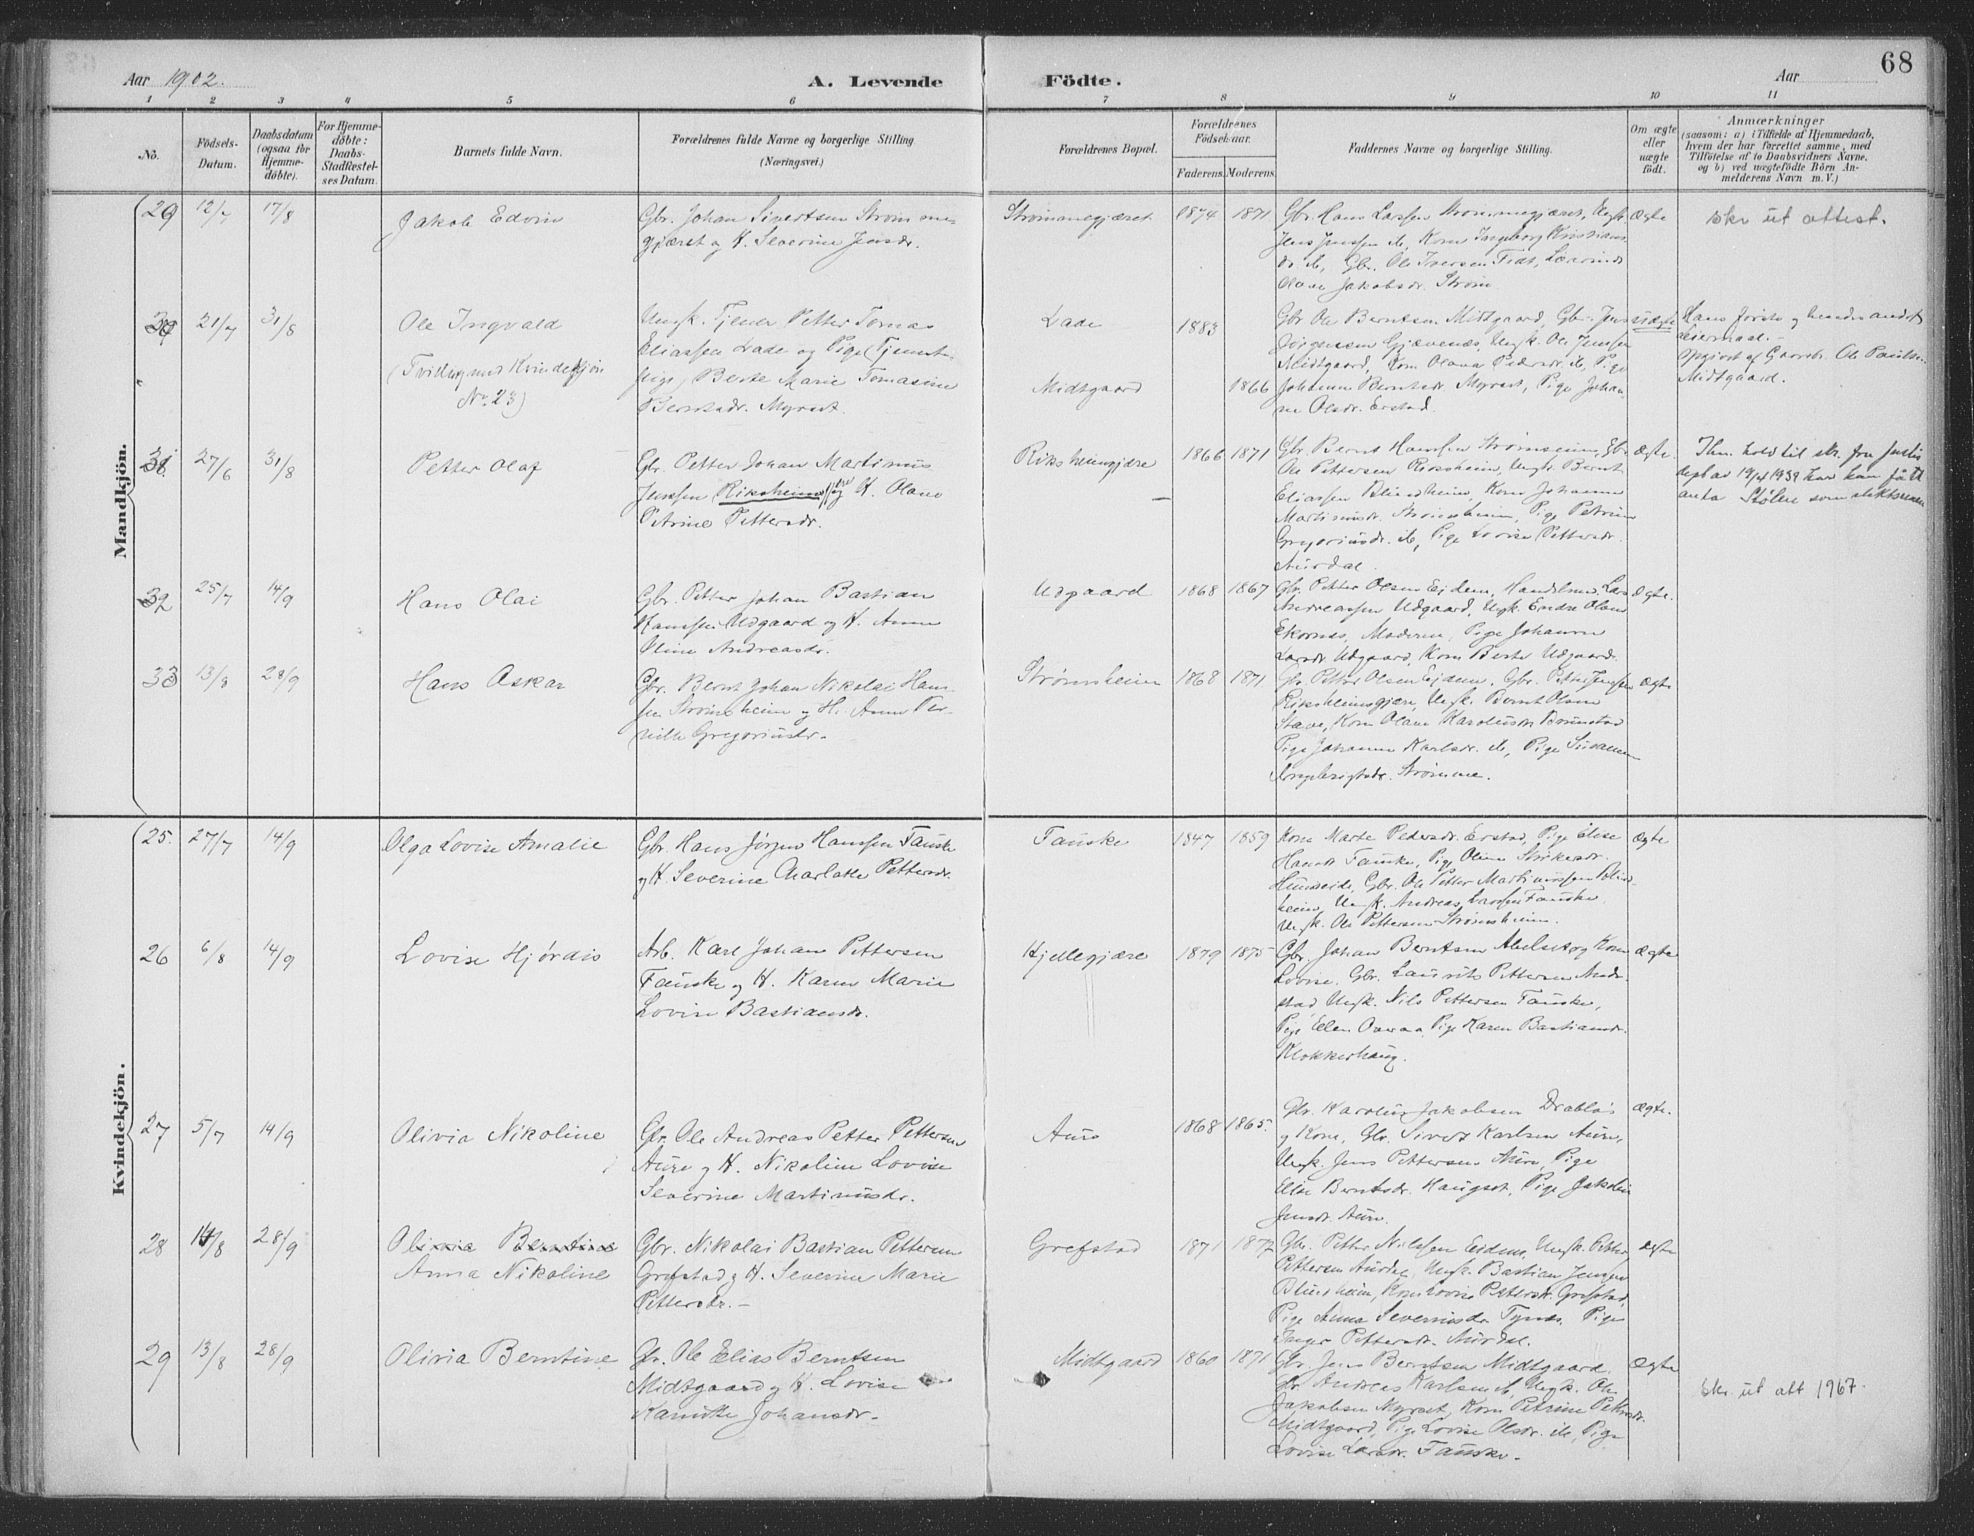 68
Aar 1902.
A. Levende Födte.
Aar
1 2 3 4 5 6 7 8 9 10 11
No.
Födsels-
Datum.
Daabsdatum
(ogsaa for
Hjemme-
döbte).
For Hjemme-
döbte:
Daabs-
Stadfæstel-
ses Datum.
Barnets fulde Navn.
Forældrenes fulde Navne og borgerlige Stilling
(Næringsvei.)
Forældrenes Bopæl.
Forældrenes
Födselsaar.
Faderens. Moderens.
Faddernes Navne og borgerlige Stilling.
Om ægte
eller
uægte
födt.
Anmærkninger
(saasom: a) i Tilfælde af Hjemmedaab,
hvem der har forrettet samme, med
Tilföielse af to Daabsvidners Navne,
og b) ved uægtefödte Börn An-
melderens Navn m. V.)
Mandkjön.
29 12/7 17/8
Jakob Edvin
Gbr. Johan Sivertsen Strømme-
gjæret og H. Severine Jensdr.
Strømmegjæret
1874 1871
Gbr. Hans Larssen Strømmegjæret, Ungk.
Jens Jenssen do, Kone Ingeborg Kristians
dr do, Gbr. Ole Iversen Tedt,
Olave Jakobsdr. Strøm
Ægte
skr ut attest.
30 21/7 31/8
Ole Ingvald
(Tvilling med Kvindekjøn
No 23)
Ungk. Tjener Petter Tomas
Eliassen Lade og Pige (Tjeneste-
pige) Berte Marie Tomasine
Berntsdr. Myrset.
Lade
Midtgaard
1883
1866
Gbr Ole Berntsen Midtgaard, Gbr. Jens
Jørgenssen Gjævenes, Ungk. Ole Jenssen
Midtgaard, Kone Olava Pedersdr. do, Pige
Johanne Berntsdr. Myrset, Pige Johan-
ne Olsdr. Erstad.
uægte
Hans første og hendes andet
Leiermaal.-
Opgivet af Gaardbr. Ole Paulsen
Midtgaard.
31 27/6 31/8
Petter Olaf
Gbr. Petter Johan Martinus
Jenssen Riksheimgjære og H. Olave
Petrine Pettersdr.
Riksheimgjære
1866 1871
Gbr. Bernt Hanssen Strømsheim, Gbr.
Ole Pettersen Riksheim, Ungk. Bernt
Eliassen Blindheim, Kone Johanne
Martinusdr. Strømsheim, Pige Petrine
Gregoriusdr. do, Pige Lovise Pettersdr.
Aurdal.
ægte.
Ihm. hold til skr. fra Justis
dept av 19/4 1939 har han fått
anta Stølen som slektsnavn
32 25/7 14/9
Hans Olai
Gbr. Petter Johan Bastian
Hanssen Udgaard og H. Anne
Oline Andreasdr.
Udgaard
1868 1867
Gbr. Petter Olsen Eidem, Handelsm. Lars
Andreassen Udgaard, Ungk. Endre Olsen
Ekornes, Moderen, Pige Johanne
Larsdr. Udgaard, Kone Berte Udgaard.
ægte.
33 13/8 28/9
Hans Oskar
Gbr. Bernt Johan Nikolai Hans-
sen Strømsheim og H. Anne Per-
nille Gregoriusdr.
Strømsheim
1868 1871
Gbr. Petter Olsen Eidem, Gbr. Petter Jenssen
Riksheimsgjære, Ungk. Bernt Olsen
Stave, Kone Olave Karolusdr. Brunstad
Pige Johanne Karlsdr. do, Pige Susanne
Engebrigtsdr. Strømme.
ægte
Kvindekjön.
25. 27/7 14/9
Olga Lovise Amalie
Gbr. Hans Jørgen Hanssen Fauske
og H. Severine Charlotte Pettersdr.
Fauske
1847 1859
Kone Marte Pedersdr. Erstad, Pige Elise
Hansdr. Fauske, Pige Oline
Hunseide, Gbr. Ole Petter Martinussen Blind-
heim, Ungk. Andreas Larssen Fauske
Ungk. Ole Pettersen Strømsheim.
ægte
26 6/8 14/9
Lovise Hjørdis
Arb. Karl Johan Pettersen
Fauske og H. Karen Marie
Lovise Bastiansdr.
Hjellegjære
1879 1875
Gbr. Johan Berntsen Abelseth og Kone
Lovise, Gbr. Laurits Pettersen Andr-
stad, Ungk. Nils Pettersen Fauske,
Pige Ellen Overaa, Pige Karen Bastiansdr.
Klokkerhaug.
ægte
27 5/7 14/9
Olivia Nikoline
Gbr. Ole Andreas Petter Pettersen
Aure og H. Nikoline Lovise
Severine Martinusdr.
Aure
1868 1865.
Gbr. Karolus Jakobsen Drabløs
og Kone, Gbr. Sivert Karlsen Aure,
Ungk. Jens Pettersen Aure, Pige
Else Berntsdr. Haugset, Pige Jakobine
Jensdr. Aure.
ægte.
28 14/8 28/9
Olivia Berntine
Anna Nikoline
Gbr. Nikolai Bastian Pettersen
Grefstad og H. Severine Marie
Pettersdr.-
Grefstad
1871 1872
Gbr. Petter Nilssen Eidem, Ungk. Petter
Pettersen Aurdal, Ungk. Bastian Jenssen
Blindheim, Kone Lovise Pettersdr. Grefstad,
Pige Anna Severinsdr. Tynes, Pige
Inger Pettersdr. Aurdal.
ægte
29 13/8 28/9
Olivia Berntine
Gbr. Ole Elias Berntsen
Midtgaard og H. Lovise
Kamille Johansdr.-
Midtgaard
1860 1871
Gbr. Jens Berntsen Midtgaard
Gbr. Andreas Karlsen do, Ungk. Ole
Jakobsen Myrset, Kone Petrine Pettersdr.
Midtgaard, Pige Lovise Olsdr. do, Pige
Lovise Larsdr. Fauske.
Ægte
skr. ut att 1967.